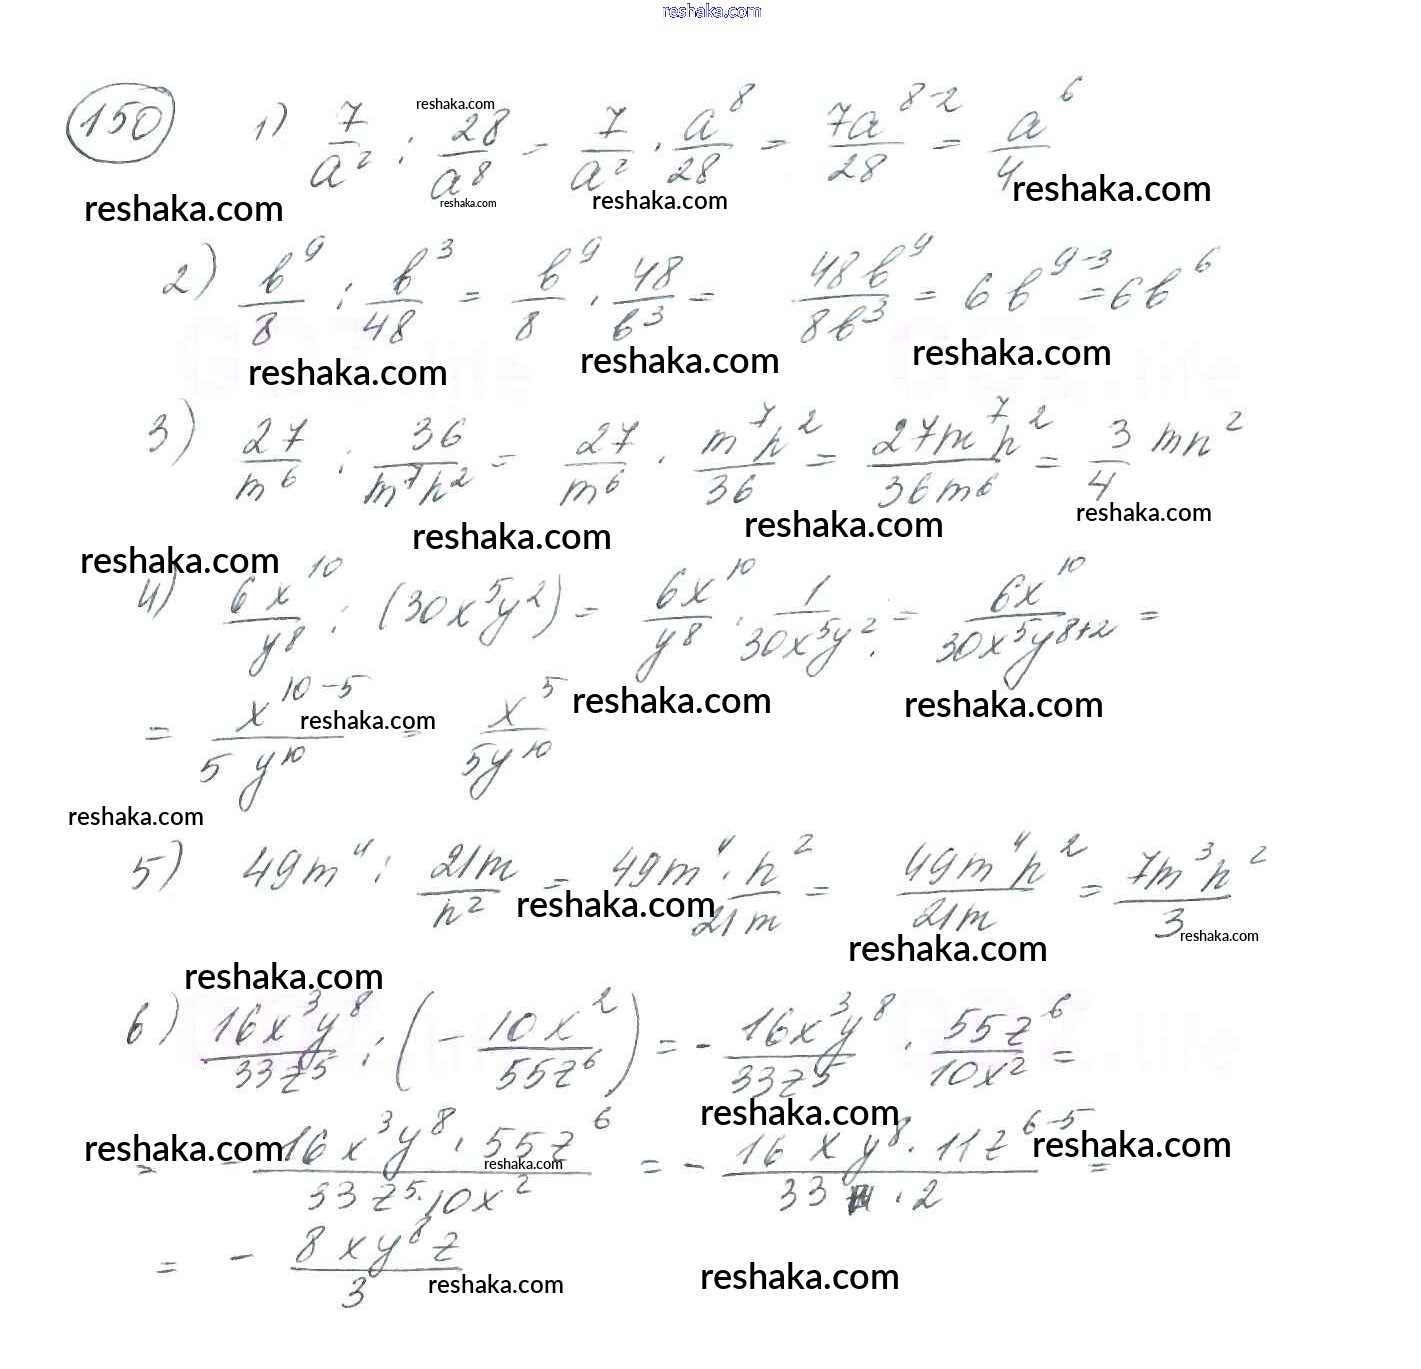 reshaka.com
150 1) 7/a² : 28/a⁸ = 7/a² · a⁸/28 = 7a⁸⁻²/28 = a⁶/4
reshaka.com
reshaka.com
reshaka.com
reshaka.com
reshaka.com
2) b⁹/8 : b³/48 = b⁹/8 · 48/b³ = 48b⁹/8b³ = 6b⁹⁻³ = 6b⁶
reshaka.com
reshaka.com
reshaka.com
3) 27/m⁶ : 36/m⁷n² = 27/m⁶ · m⁷n²/36 = 27m⁷n²/36m⁶ = 3/4 mn²
reshaka.com
reshaka.com
reshaka.com
reshaka.com
4) 6x¹⁰/y⁸ : (30x⁵y²) = 6x¹⁰/y⁸ · 1/30x⁵y² = 6x¹⁰/30x⁵y⁸⁺² =
= x¹⁰⁻⁵/5y¹⁰ = x⁵/5y¹⁰
reshaka.com
reshaka.com
reshaka.com
reshaka.com
5) 49m⁴ : 21m/n² = 49m⁴ · n²/21m = 49m⁴n²/21m = 7m³n²/3
reshaka.com
reshaka.com
reshaka.com
reshaka.com
6) 16x³y⁸/33z⁵ : (- 10x²/55z⁶) = - 16x³y⁸/33z⁵ · 55z⁶/10x² =
reshaka.com
reshaka.com
reshaka.com
= - 16x³y⁸ · 55z⁶/33z⁵ · 10x² = - 16xy⁸ · 11z⁶⁻⁵/33 · 2 =
reshaka.com
= - 8xy⁸z/3
reshaka.com
reshaka.com